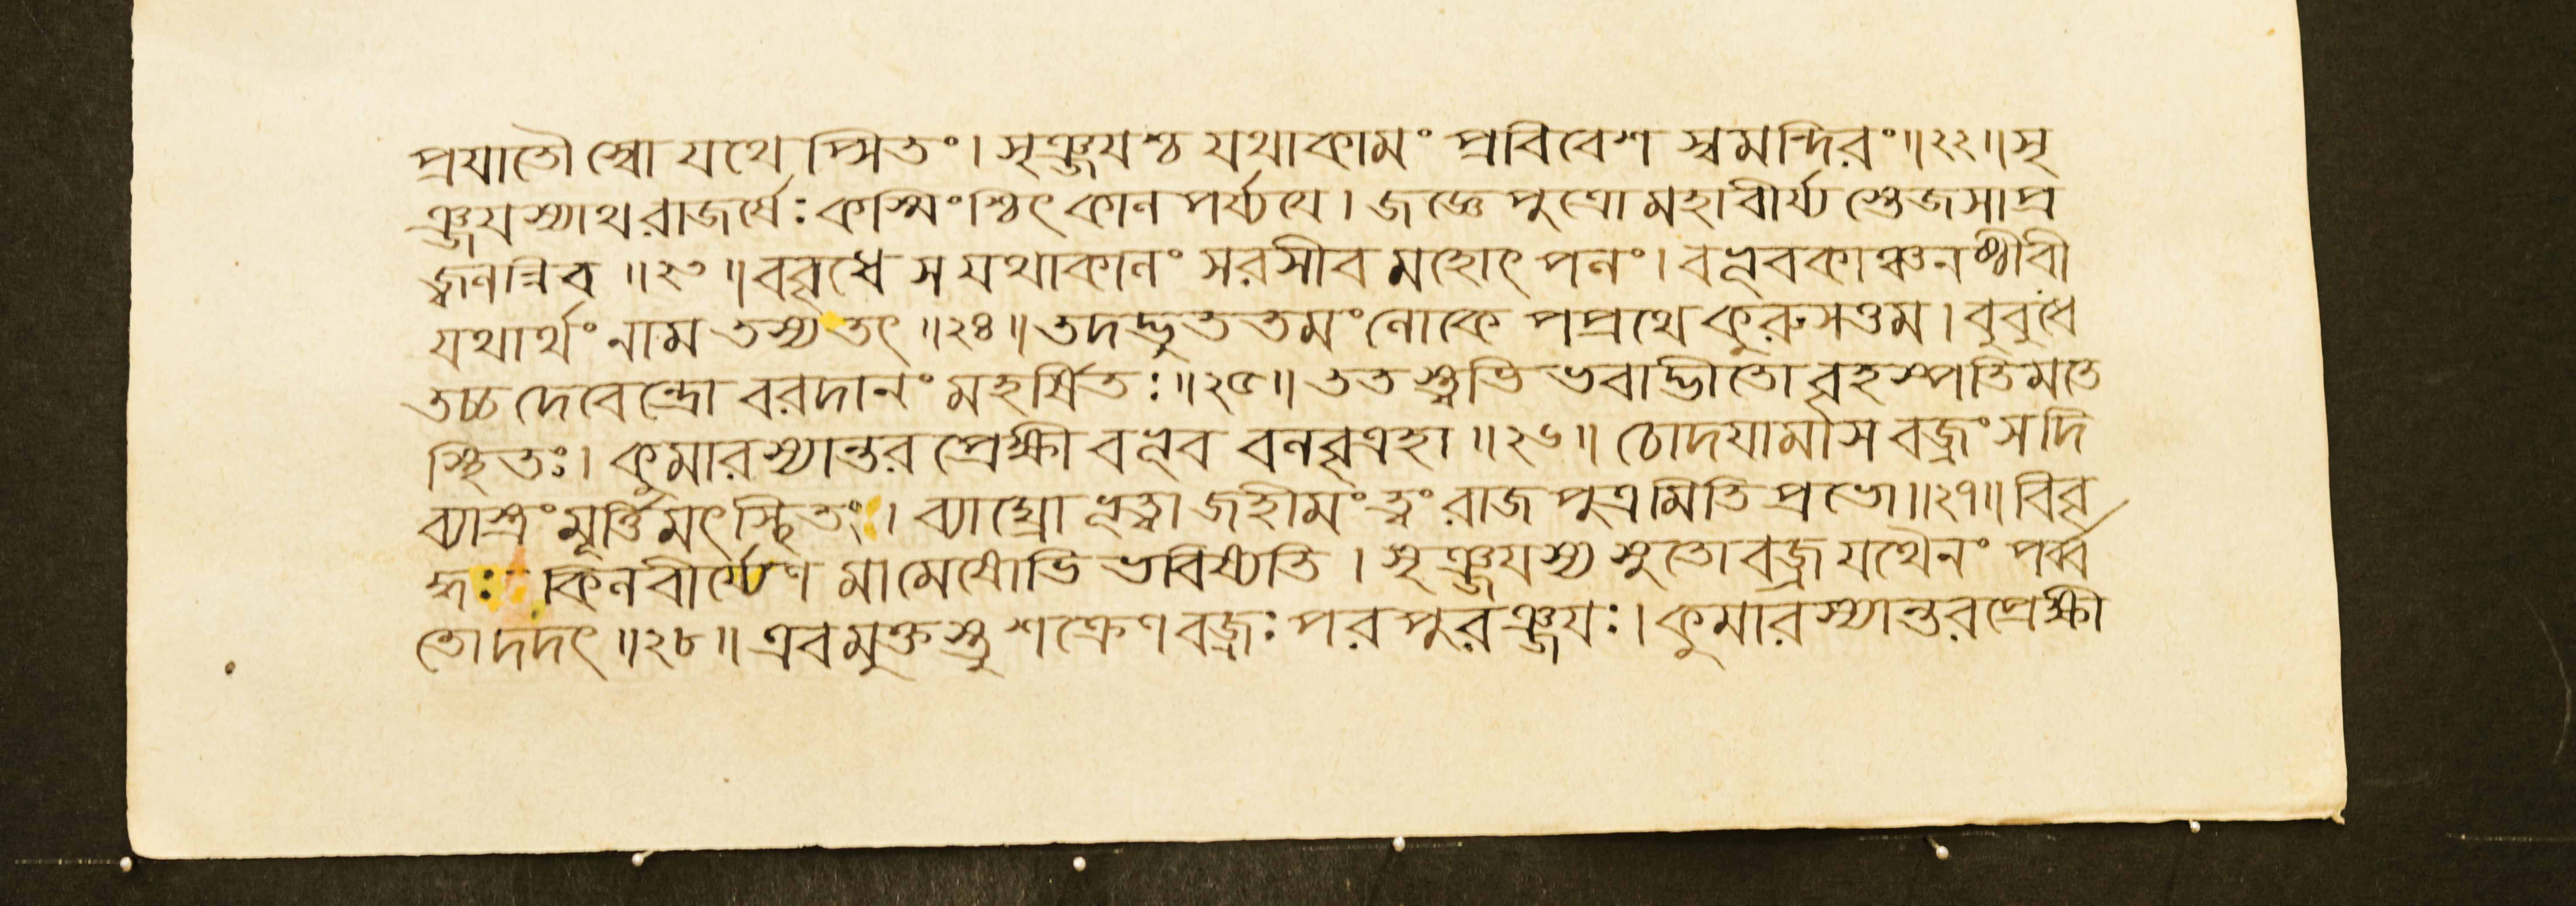 প্রযাতৌ স্বো যথেপ্সিতং। সৃঞ্জযশ্চ যথাকামং প্রবিবেশ স্বমন্দিরং॥২২॥সৃ
ঞ্জযস্যাথ রাজর্ষেঃ কস্মিংশ্চিৎ কালপর্য্যযে। জজ্ঞে পুত্রো মহাবীর্য্যস্তেজসা প্র
জ্বলন্নিব॥২৩॥ববৃধে স যথাকালং সরসীব মহোৎপলং। বভূব কাঞ্চনষ্ঠীবী
যথার্থং নাম তস্য তৎ॥২৪॥তদদ্ভুততমং লোকে পপ্রথে কুরুসত্তম। বুবুধে
তচ্চ দেবেন্দ্রো বরদানং মহর্ষিতঃ॥২৫॥ততস্ত্বভিভবাদ্ভীতো বৃহস্পতিমতে
স্থিতঃ। কুমারস্যান্তরপ্রেক্ষী বভূব বলবৃত্রহা॥২৬॥চোদযামাস বজ্রং স দি
ব্যাস্ত্রং মূর্ত্তিমৎস্থিতং। ব্যাঘ্রো ভূত্বা জহীমং ত্বং রাজপুত্রমিতি প্রভো॥২৭॥বিবৃ
দ্ধঃ কিল বীর্য্যেণ মামেষোভিভবিষ্যতি। সৃঞ্জযস্য সুতো বজ্র যথৈনং পর্ব্ব
তো দদৎ॥২৮॥এবমুক্তস্তু শক্রেণ বজ্রঃ পরপুরঞ্জযঃ। কুমারস্যান্তরপ্রেক্ষী